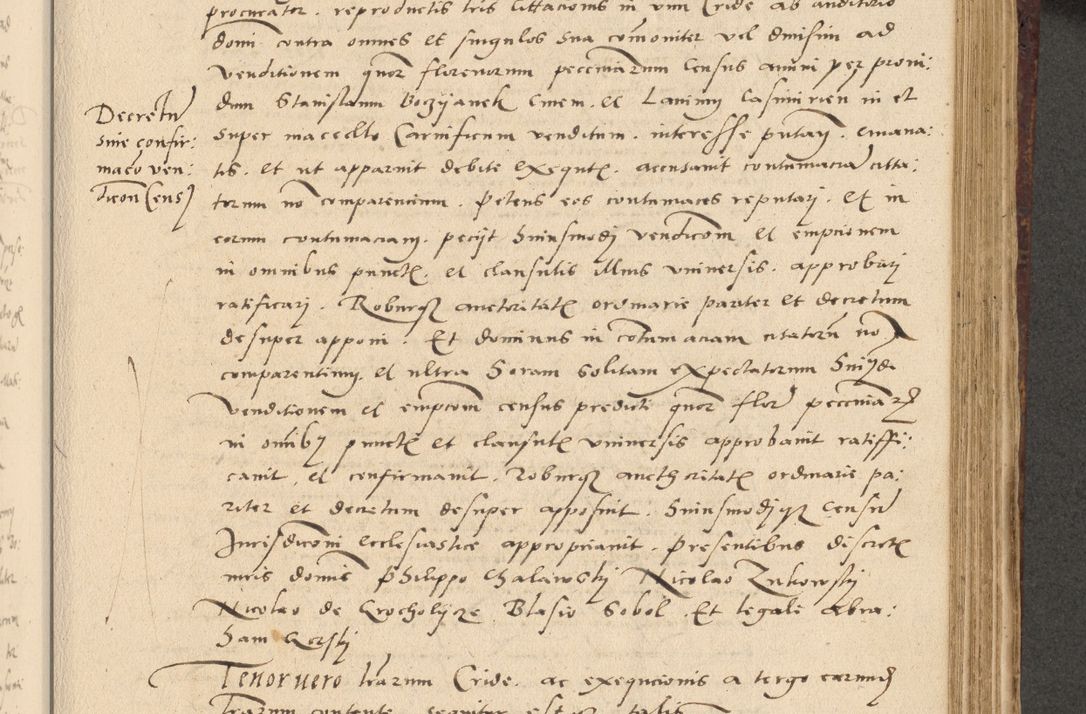 procurator. reproductis lris cittacionis in vim Cride ab auditorio
domi contra omnes et singulos sua comoniter vel divisim ad
venditionem quor florenorum pecceniarum census annui per provi:
dum Stanislaum Boczyanek Civem. et Lanium Casimirien in et
super maccello Carnificum venditum. interesse putan. emana:
tis. et ut apparuit debite exequt. accusavit contumacia citta:
torum no comparencium. Petens eos contumaces reputari. Et in
eorum contumaciam. peciit huiusmodi vendicom et empcionem
in omnibus punct. et clausulis illius universis. approbari
ratificari. Roburq auctoritat ordinarie pariter et decretum
desuper apponi. Et dominus in cotumaciam citatoru no
comparentium. et ultra horam solitam expectatorum huiusmodi
venditionem et emptcom census predicti quor flor pecceniar
in omibus punct et clausul universis approbavit ratiffi:
cavit, et confirmavit. Roburq aucthoritat ordinarie pa:
riter et decretum desuper apposuit. huiusmodiqz censu
Jurisdicom ecclesiastice appropriavit. Presentibus discret
viris domis Philippo Chalawski Nicolao Zukowski
Nicolao de Crocholycze Blasio Sobol. Et legale Abra:
ham Gorski
Decretu
sive confir:
macio ven:
dicon Cens
Tenor vero lrarum Cride. ac exequcionis a tergo earund
lrarum contente sequitur estqz talis